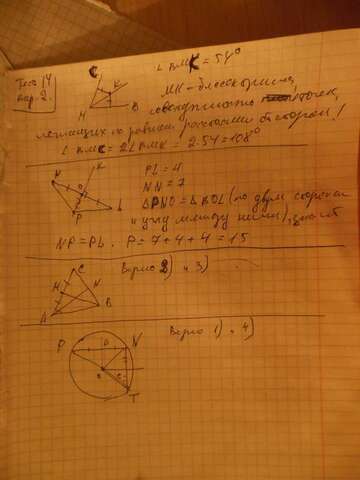 Тест 14
вар. 2.
∠ BMK = 54°
MK - биссектриса,
совокупность точек,
лежащих на равном расстоянии от сторон!
∠ KMC = 2∠BMK = 2·54 = 108°
PL = 4
NN = 7
∆PNO = ∆ ROL (по двум сторонам
и углу между ними), значит
NP = PL. P = 7 + 4 + 4 = 15
Верно 2) и 3)
Верно 1) и 4)